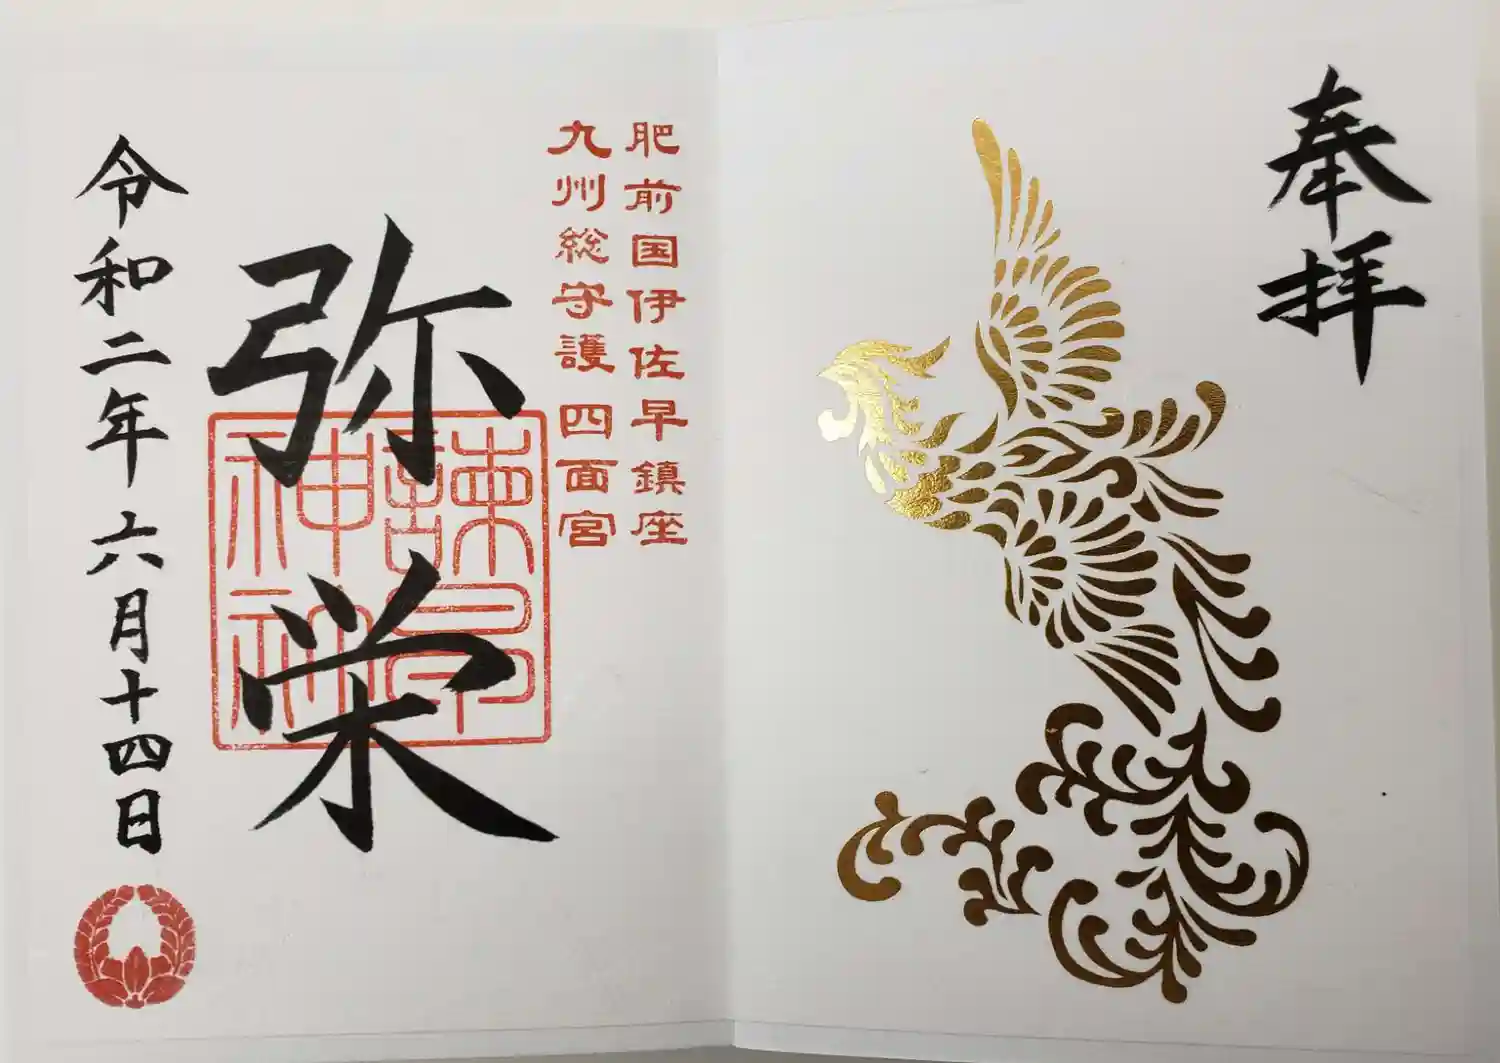 奉拝
肥前国伊佐早鎮座
九州総守護 四面宮
弥栄
諫早
神社
令和二年 六月十四日